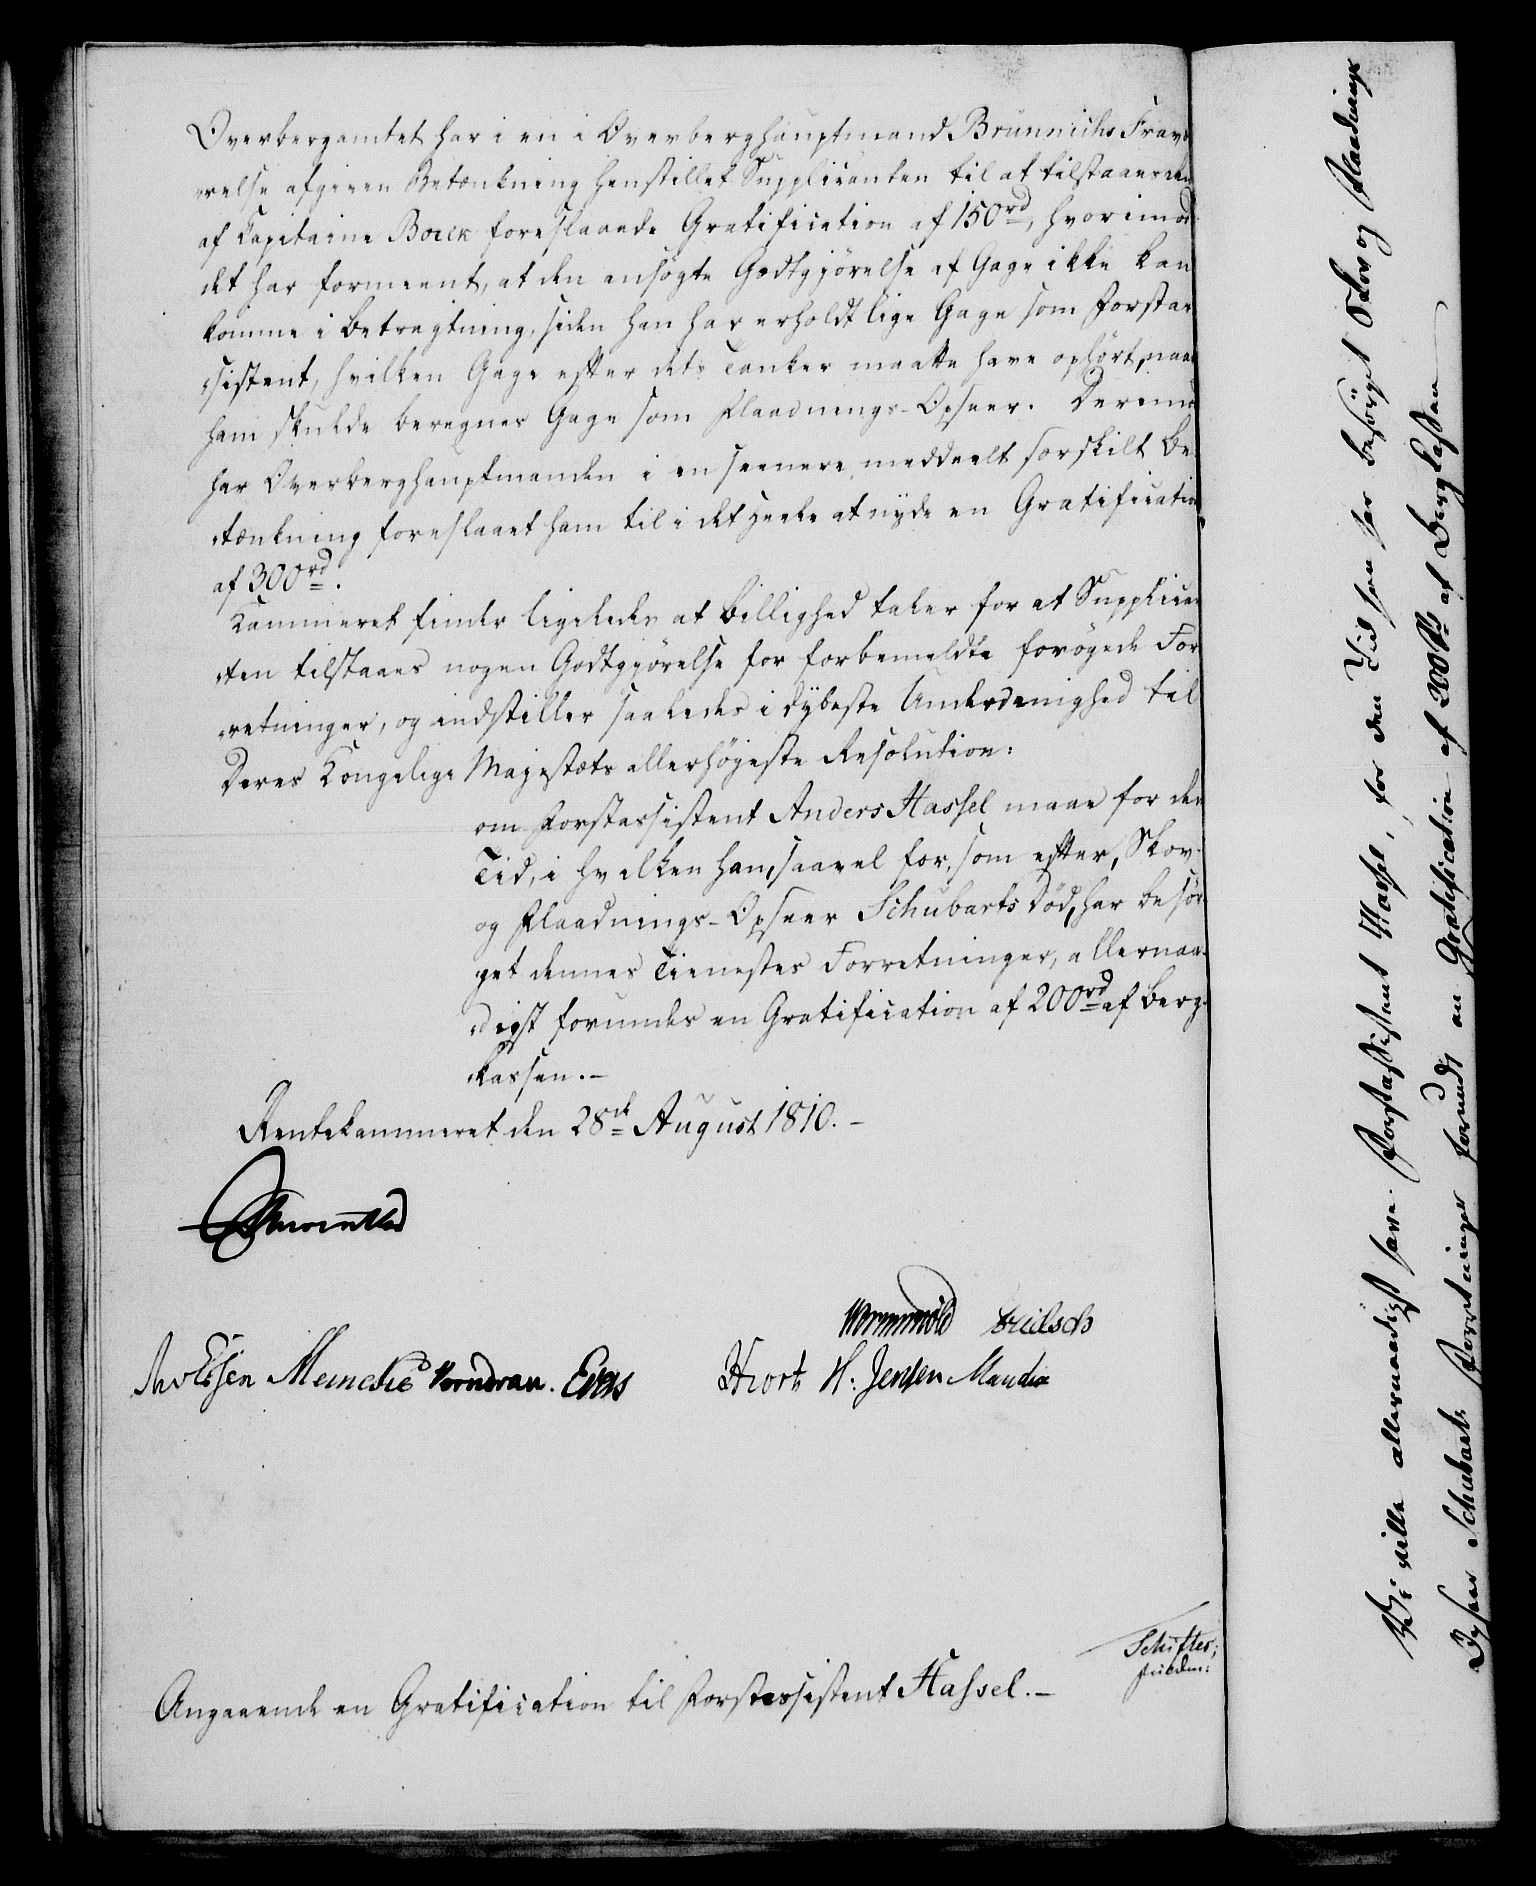 Overbergamtet har i en i Overberghauptmand Brünnichs Fravæ
„relse afgiven Betænkning henstillet Supplicanten til at tilstaaes den
af Capitaine Boeck foreslaaede Gratification af 150rd, hvorimod
det har formeent, at den ansøgte Godtgjørelse af Gage ikke kan
komme i Betragtning, siden han har erholdt lige Gage som Forstas
„sistent, hvilken Gage efter dets Tanker maatte have ophørt, naar
ham skulde beregnes Gage som Flaadnings-Opseer. Derimod
har Overberghauptmanden i en seenere meddeelt særskilt Be
„tænkning foreslaaet ham til i det Heele at nyde en Gratification
af 300rd.
Kammeret finder ligeledes at Billighed taler for at Supplican
„ten tilstaaes nogen Godtgjørelse for forbemeldte forøgede For
„retninger, og indstiller saaledes i dybeste Underdanighed til
Deres Kongelige Majestæts allerhøyeste Resolution:
om Forstassistent Anders Hassel maae for den
Tid, i hvilken han, saavel for, som efter, Skov-
og Flaadnings-Opseer Schubarts Død, har besør
get dennes Tienestes Forretninger, allernaa-
„digst forundes en Gratification af 200rd af Berg-
„kassen.-
Rentekammeret den 28de August 1810.-
Wormskiold
Meinche Vorndran. Evers Hiort H. Jensen Manthe
Schifter;
Angaaende en Gratification til Forstassistent Hassel.-
Vi ville allernaadigst have Forstassistent Hassel, for den Tid han har besørget Skov og Flaadnings
Opseer Schubarts Forretninger forundt en Gratification af 200 Rd af Bergkassen